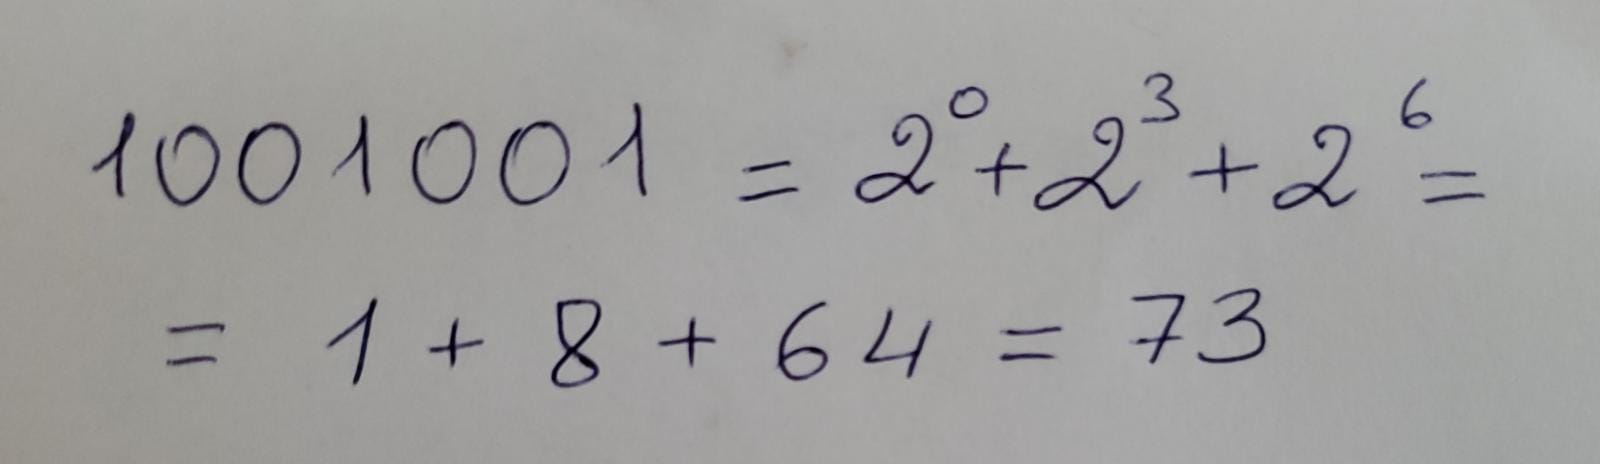 1001001 = 2⁰ + 2³ + 2⁶ =
= 1 + 8 + 64 = 73